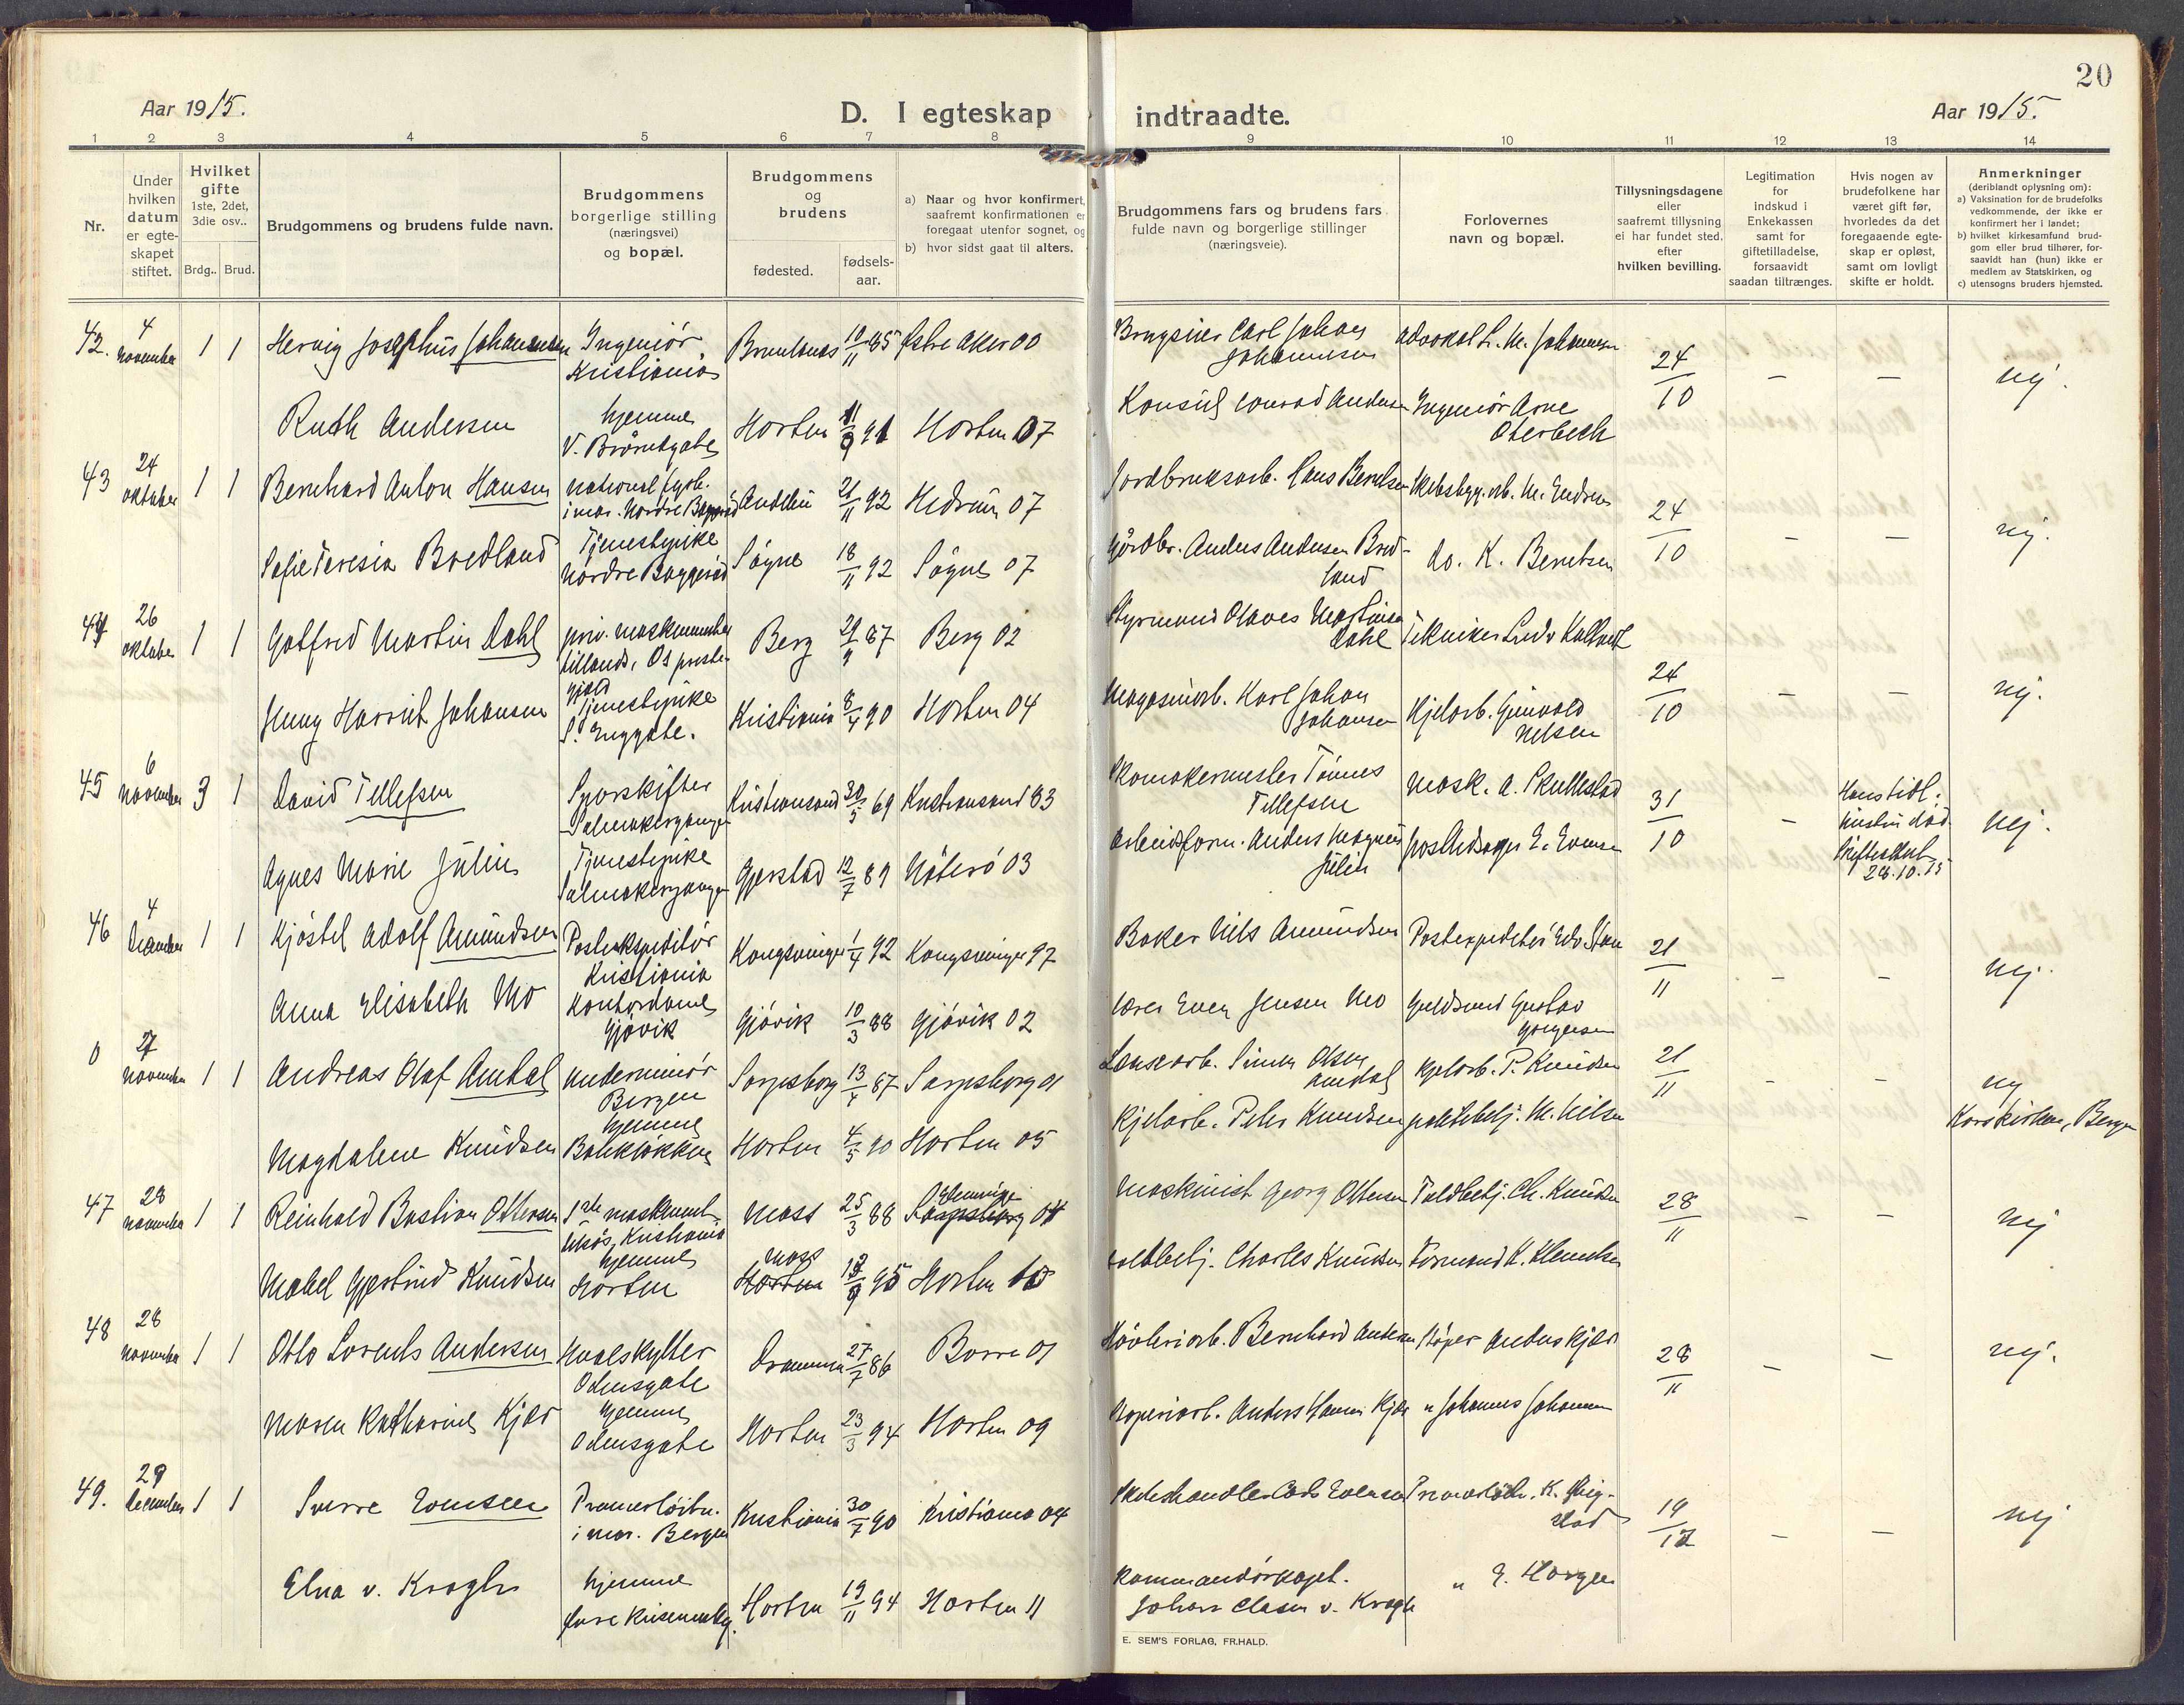 20
Aar 1915.
D. I egteskap indtraadte.
Aar 1915.
1 2 3 4 5 6 7 8 9 10 11 12 13 14
Nr.
Under
hvilken
datum
er egte-
skapet
stiftet.
Hvilket
gifte
1ste, 2det,
3die osv..
Brdg.. Brud.
Brudgommens og brudens fulde navn.
Brudgommens
borgerlige stilling
(næringsvei)
og bopæl.
Brudgommens
og
brudens
fødested.
fødsels-
aar.
a) Naar og hvor konfirmert,
saafremt konfirmationen er
foregaat utenfor sognet, og
b) hvor sidst gaat til alters.
Brudgommens fars og brudens fars
fulde navn og borgerlige stillinger
(næringsveie).
Forlovernes
navn og bopæl.
Tillysningsdagene
eller
saafremt tillysning
ei har fundet sted.
efter
hvilken bevilling.
Legitimation
for
indskud i
Enkekassen
samt for
giftetilladelse,
forsaavidt
saadan tiltrænges.
Hvis nogen av
brudefolkene har
været gift før,
hvorledes da det
foregaaende egte-
skap er opløst,
samt om lovligt
skifte er holdt.
Anmerkninger
(deriblandt oplysning om):
a) Vaksination for de brudefolks
vedkommende, der ikke er
konfirmert her i landet;
b) hvilket kirkesamfund brud-
gom eller brud tilhører, for-
saavidt han (hun) ikke er
medlem av Statskirken, og
c) utensogns bruders hjemsted.
42. 4 november 1 1 Josephus Johannesen Ingeniør Kristiania 10/11 85 Østre Aker 00 Carl Johan Johannesen advokat Johannesen 24/10 – – nej.
Ruth Andersen hjemme Horten 11/9 91 Horten 07 Konsul Conrad Andersen Ingeniør Arne Oterbech
43 24 oktober 1 1 Bernhard Anton Hansen Nordre 21/11 92 Hedrum 07 Jordbruksarb. Hans Berntsen 24/10 – – nej.
Sofie Teresia Bredland Tjenestepike Nordre Baggerød Søgne 18/11 92 Søgne 07 Gårdbr. Anders Andersen Bredland do. K. Berntsen
44 26 oktober 1 1 Gotfred Martin Dahl Berg 87 Berg 02 Styrmand Olaves Dahl Tekniker 24/10 – – nej.
Jenny Harriet Johansen Tjenestepike Kristiania 8/4 90 Horten 04 Magasinarb. Karl Johan Johansen Kjelarb. Nilsen
45 6 november 3 1 David Tellefsen Sporskifter Salmakergangen Kristiansand 20/5 69 Kristiansand 83 Skomakermester Tønnes Tellefsen Mask. A. Skullestad 31/10 – Hans tidl. hustru død. 28.10.15 nej.
Agnes Marie Julin Tjenestepike Salmakergangen Gjerstad 12/7 89 Nøterø 03 Arbeidsform. Anders Magnus Julin E. Evensen
46 4 december 1 1 Kjøstel Adolf Amundsen Postekspeditør Kristiania Kongsvinger 1/4 92 Kongsvinger 97 Baker Nils Amundsen Postexpeditør 21/11 – – nej.
Anna Elisabeth Mo Kontordame Gjøvik Gjøvik 10/3 88 Gjøvik 02 Lærer Even Jensen Mo Guldsmed Gustav
0 27 november 1 1 Andreas Olaf Amdal Underminør Bergen Sarpsborg 13/4 87 Sarpsborg 01 Simen Olsen Amdal Kjelarb. P. Knudsen 21/11 – – nej Korskirken, Bergen
Magdalene Knudsen hjemme Bankløkken Horten 4/5 90 Horten 05 Kjelarb. Peter Knudsen politibetj. M. Nilsen
47 28 november 1 1 Reinhold Bastian Ottersen Kristiania Moss 25/3 88 Sarpsborg 04 Maskinist Georg Ottersen Toldbetj. Ch. Knudsen 28/11 – – nej
Mabel Gjertrud Knudsen hjemme Horten Moss Horten 95 Horten 10 Toldbetj. Charles Knudsen Formand
48 28 november 1 1 Otto Lorents Andersen Hvalskytter Odinsgate Drammen 27/7 86 Borre 01 Høvleriarb. Bernhard Andersen Støper Anders Kjær 28/11 – – nej.
Maren Katharine Kjær hjemme Odinsgate Horten 23/3 94 Horten 09 Støperiarb. Anders Kjær " Johannes Johansen
49. 29 december 1 1 Sverre Evensen Premierløitn. i mar. Bergen Kristiania 30/7 90 Kristiania 04 Evensen Premierløitn. K. 19/12 – – nej
Elna v. Krogh hjemme Horten 19/11 94 Horten 11 Kommandørkapt. Johan Clasen v. Krogh " E. Horgen
E. SEM'S FORLAG, FR.HALD.